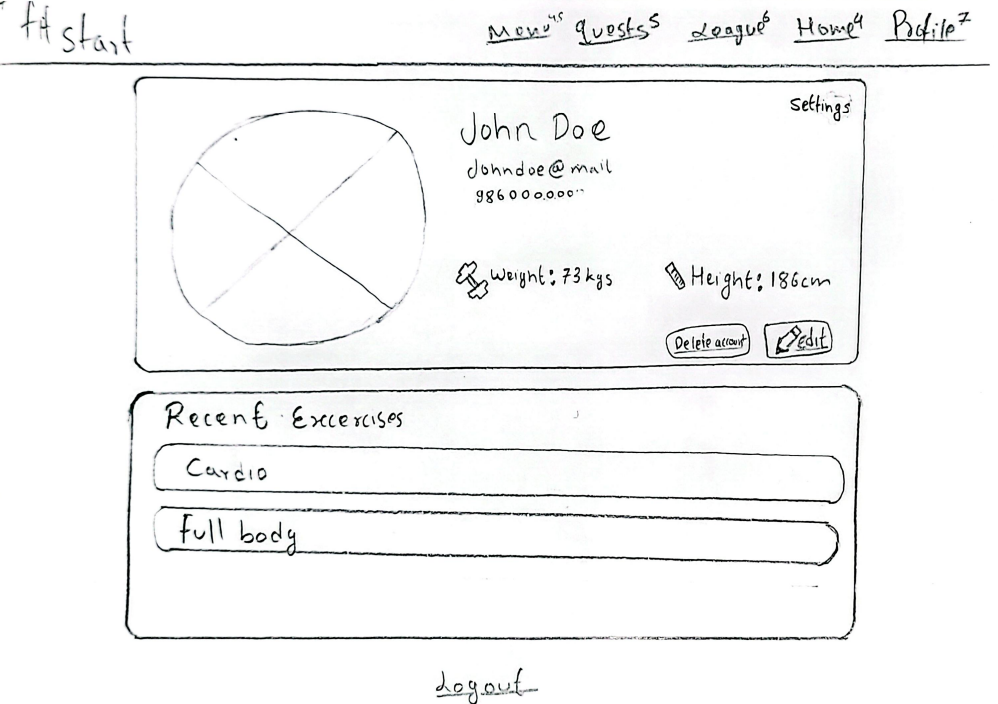 fit start
Menu⁴·⁵ Quests⁵ League⁶ Home⁴ Profile⁷
Settings
John Doe
Johndoe@mail
986000.000..
Weight: 73kgs Height: 186cm
Delete account edit
Recent Excercises
Cardio
Full body
Logout